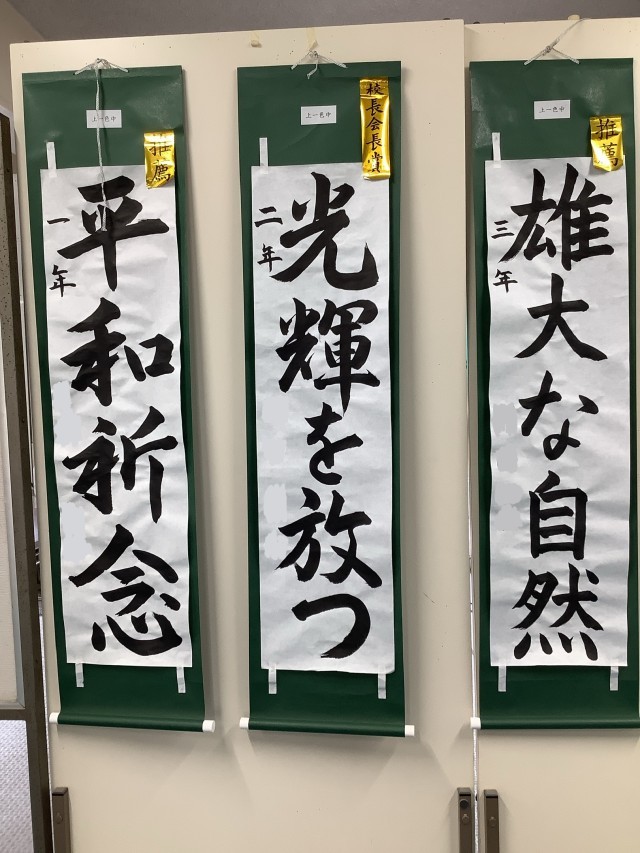 上一色中
推薦
平和祈念
一年
上一色中
校長会長賞
光輝を放つ
二年
上一色中
推薦
雄大な自然
三年